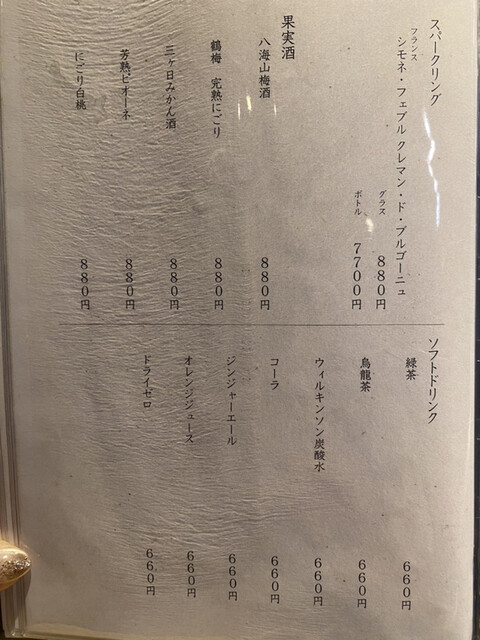 スパークリング
フランス
シモネ・フェブル クレマン・ド・ブルゴーニュ
グラス 880円
ボトル 7700円
果実酒
八海山梅酒 880円
鶴梅 完熟にごり 880円
三ヶ日みかん酒 880円
芳熟ピオーネ 880円
にごり白桃 880円
ソフトドリンク
緑茶 660円
烏龍茶 660円
ウィルキンソン炭酸水 660円
コーラ 660円
ジンジャーエール 660円
オレンジジュース 660円
ドライゼロ 660円